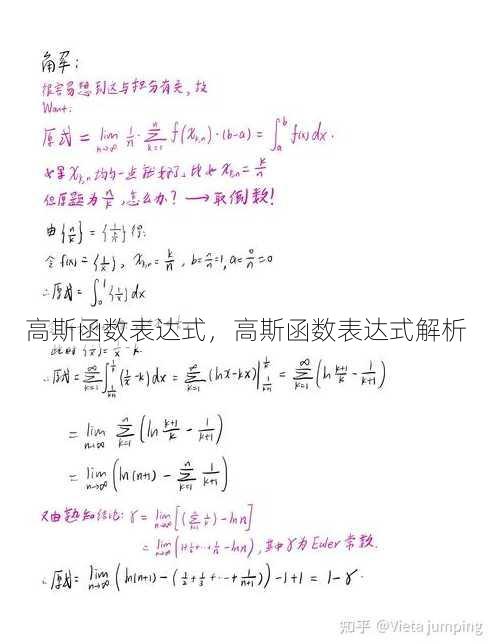 解:
很容易想到这与积分有关,故
Want:
原式 = lim_{n→∞} 1/n · Σ_{k=1}^{n} f(x_{k,n})·(b-a) = ∫_a^b f(x)dx.
如果 x_{k,n} 均匀一点就好了,比如 x_{k,n} = k/n
但原题为 n/k,怎么办? → 取倒数!
由{n/k} = {1/(k/n)}得:
令 f(x) = {1/x}, x_{k,n} = k/n, b = n/n = 1, a = 0/n = 0
∴原式 = ∫_0^1 {1/x} dx
高斯函数表达式,高斯函数表达式解析
此时{1/x} = 1/x - k.
∴原式 = Σ_{k=1}^{∞} ∫_{1/(k+1)}^{1/k} (1/x - k) dx = Σ_{k=1}^{∞} (ln x - kx)|_{1/(k+1)}^{1/k} = Σ_{k=1}^{∞} (ln (k+1)/k - 1/(k+1))
= lim_{n→∞} Σ_{k=1}^{n} (ln (k+1)/k - 1/(k+1))
= lim_{n→∞} (ln(n+1) - Σ_{k=1}^{n} 1/(k+1))
又由熟知结论: γ = lim_{n→∞} [(Σ_{k=1}^{n} 1/k) - ln n]
= lim_{n→∞} (1+1/2+···+1/n - ln n), 其中γ为Euler常数.
∴原式 = lim_{n→∞} (ln(n+1) - (1/2 + 1/3 + ··· + 1/(n+1))) - 1 + 1 = 1 - γ.
知乎 @Vieta jumping